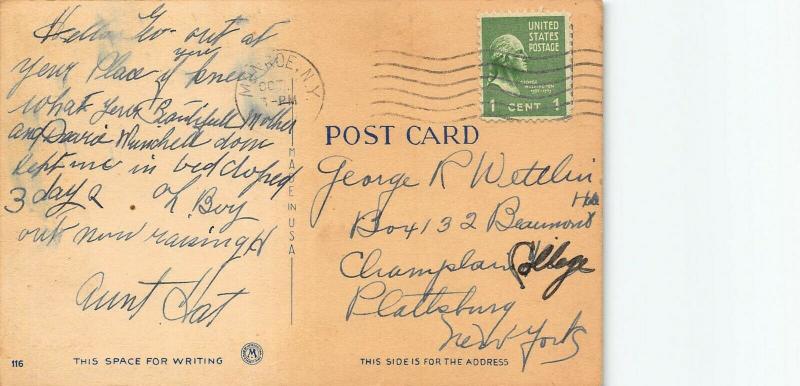 Hello Geo- out at
your Place if you knew
what your Beautifull Mother
and David Munchell done
kept me in bed doped
3 days oh Boy
out now raising H
Aunt Hat
116
THIS SPACE FOR WRITING
M
MADE IN USA
MONROE, N.Y.
OCT
-PM
UNITED
STATES
POSTAGE
GEORGE
WASHINGTON
1 CENT 1
POST CARD
George R Wettlin
Box 4132 Beaumont
Champlain College
Plattsburg
New York
THIS SIDE IS FOR THE ADDRESS